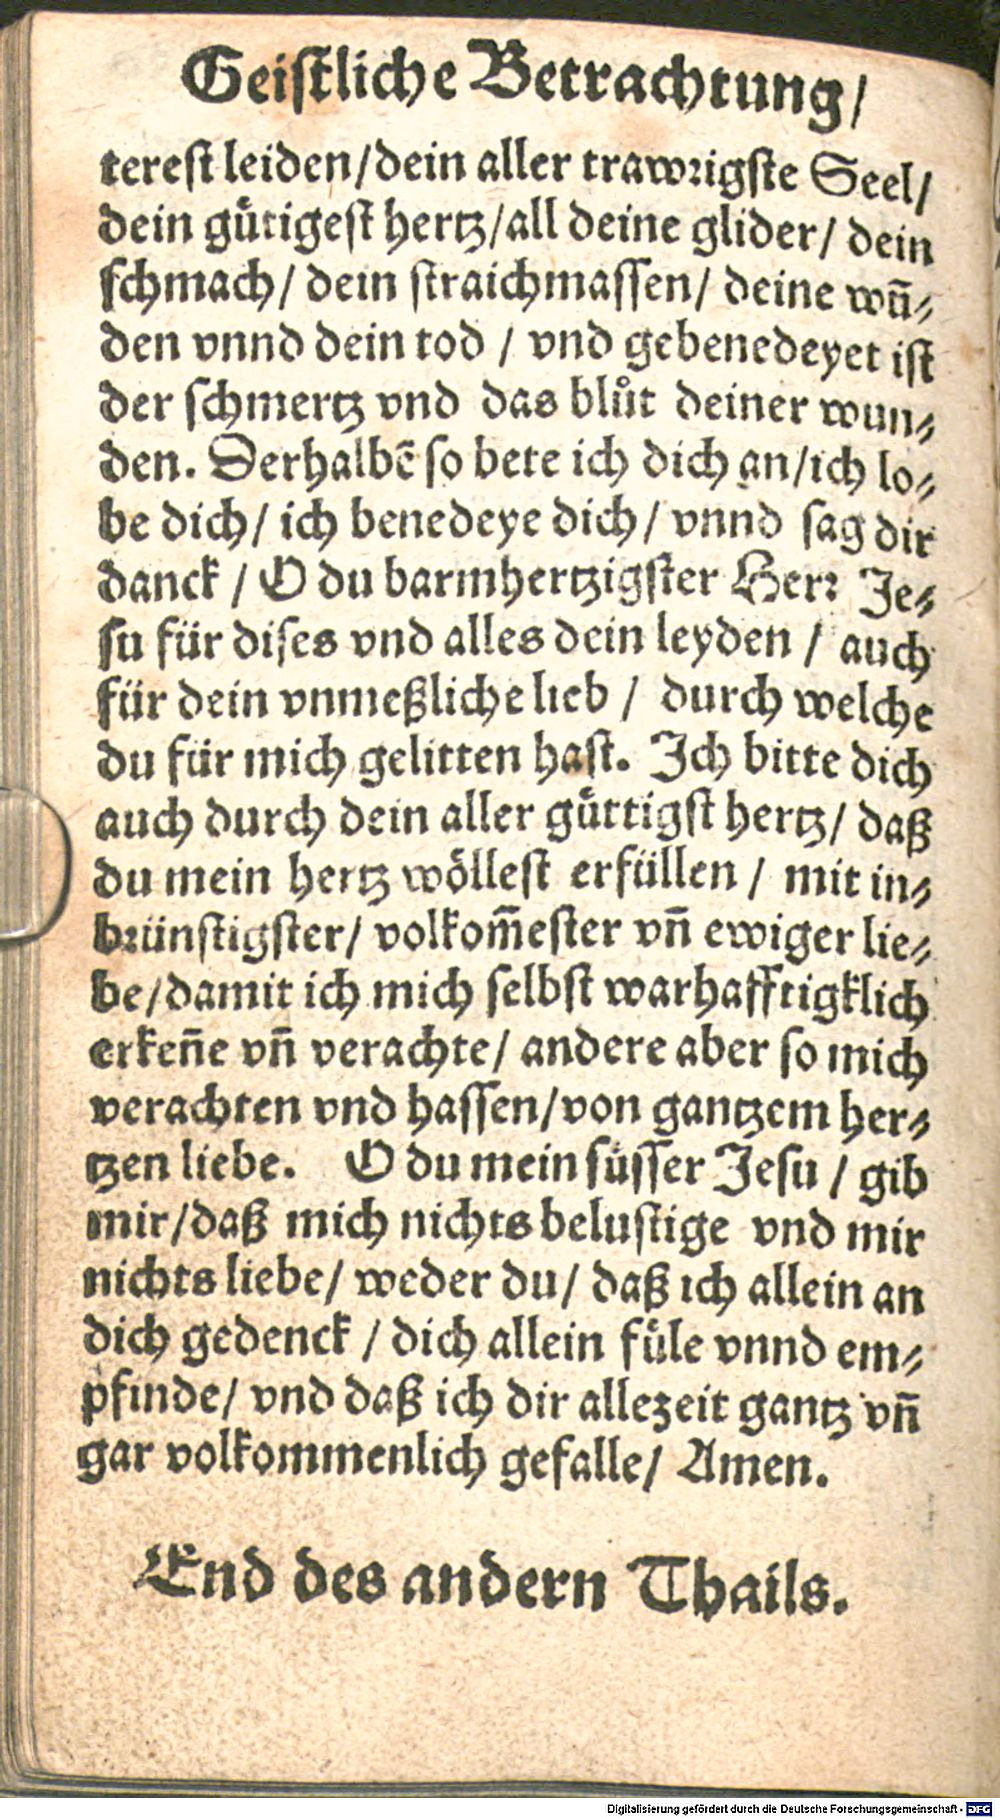 Geiſtliche Betrachtung/
tereſt leiden/dein aller trawrigſte Seel/
dein guͤtigeſt hertz/all deine glider/ dein
ſchmach/ dein ſtraichmaſſen/ deine wū⸗
den vnnd dein tod / vnd gebenedeyet iſt
der ſchmertz vnd das bluͦt deiner wun⸗
den. Derhalbē ſo bete ich dich an/ich lo⸗
be dich/ ich benedeye dich/ vnnd ſag dir
danck / O du barmhertzigſter Herꝛ Je⸗
ſu für diſes vnd alles dein leyden / auch
für dein vnmeßliche lieb / durch welche
du für mich gelitten haſt. Ich bitte dich
auch durch dein aller guͤttigſt hertz/ daß
du mein hertz woͤlleſt erfüllen / mit in⸗
bꝛünſtigſter/ volkom̄eſter vn̄ ewiger lie⸗
be/damit ich mich ſelbſt warhafftigklich
erken̄e vn̄ verachte/ andere aber ſo mich
verachten vnd haſſen/von gantzem her⸗
tzen liebe. O du mein ſuͤſſer Jeſu / gib
mir/daß mich nichts beluſtige vnd mir
nichts liebe/ weder du/ daß ich allein an
dich gedenck / dich allein fuͤle vnnd em⸗
pfinde/ vnd daß ich dir allezeit gantz vn̄
gar volkommenlich gefalle/ Amen.
End des andern Thails.
Digitalisierung gefördert durch die Deutsche Forschungsgemeinschaft - DFG